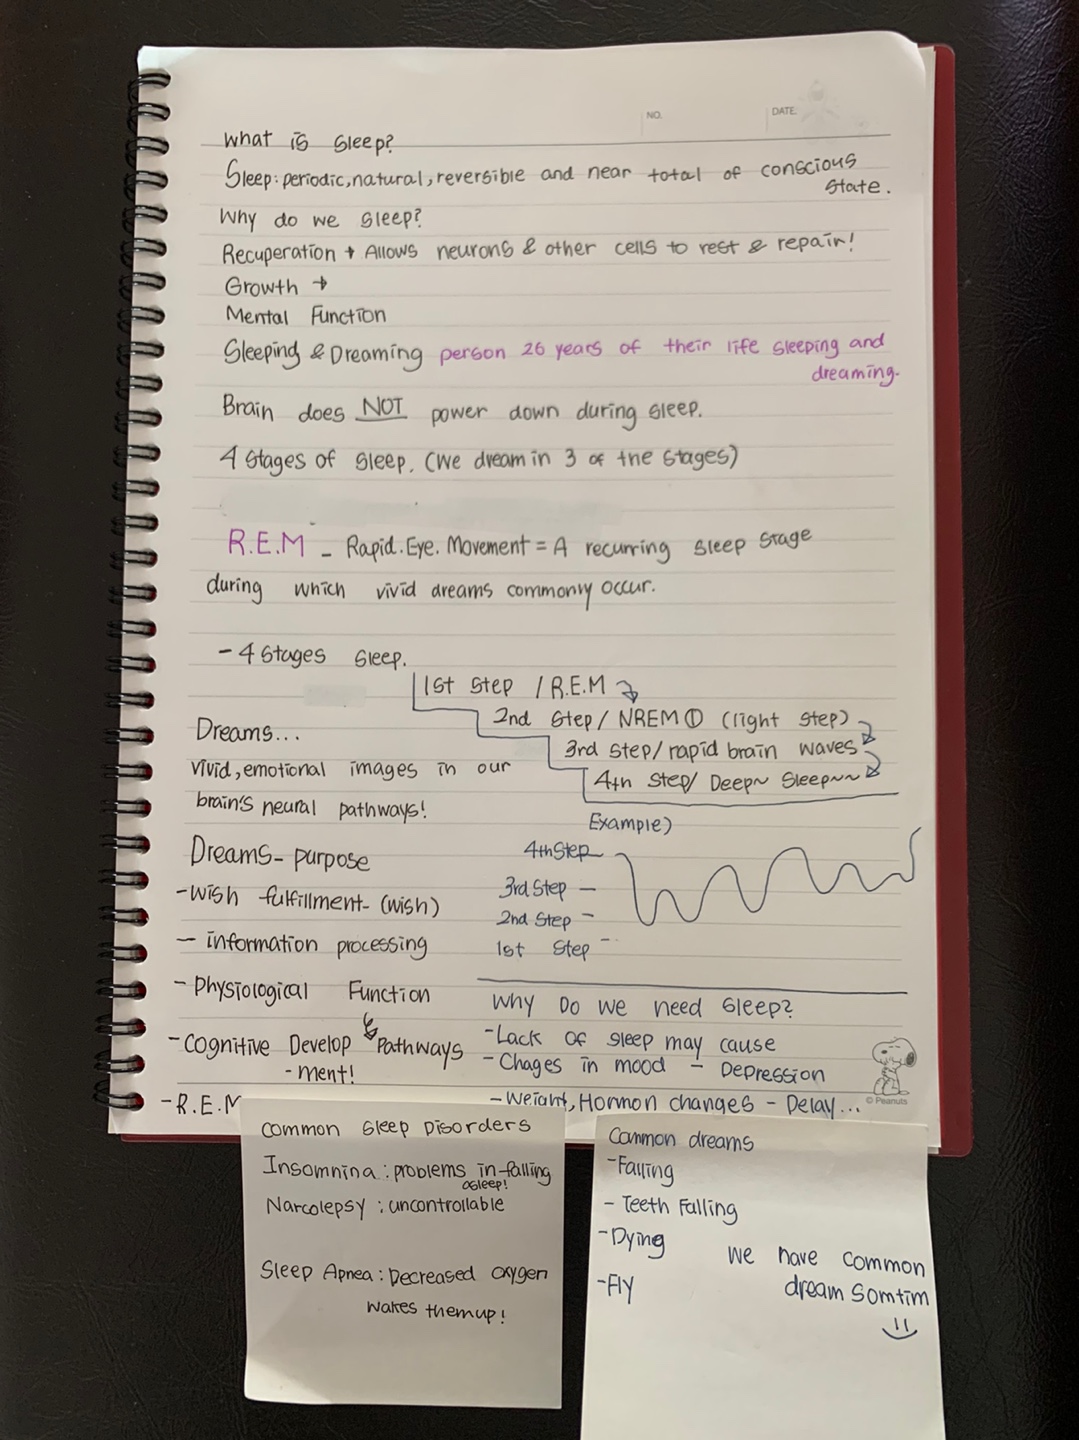 NO.
DATE.
What is sleep?
Sleep: periodic, natural, reversible and near total of conscious
state.
Why do we sleep?
Recuperation → Allows neurons & other cells to rest & repair!
Growth →
Mental Function
Sleeping & Dreaming person 26 years of their life sleeping and
dreaming.
Brain does NOT power down during sleep.
4 stages of sleep. (we dream in 3 of the stages)
R.E.M - Rapid.Eye.Movement = A recurring sleep stage
during which vivid dreams commonly occur.
- 4 stages sleep.
1st step / R.E.M
2nd step / NREM① (light step)
3rd step/ rapid brain waves
4th step/ Deep~ Sleep~~
Dreams...
vivid, emotional images in our
brain's neural pathways!
Example)
4th Step
3rd Step
2nd Step
1st Step
Dreams- purpose
-wish fulfillment- (wish)
- information processing
- Physiological Function
Pathways
-Cognitive Develop
- ment!
-R.E.M
Why Do we need sleep?
-Lack of sleep may cause
- Chages in mood - Depression
- weight, Hormon changes - Delay...
© Peanuts
Common Sleep Disorders
Insomnina: problems in-falling
asleep!
Narcolepsy : uncontrollable
Sleep Apnea: Decreased oxygen
wakes them up!
Common dreams
-Falling
- Teeth Falling
-Dying
-Fly
we have common
dream somtim